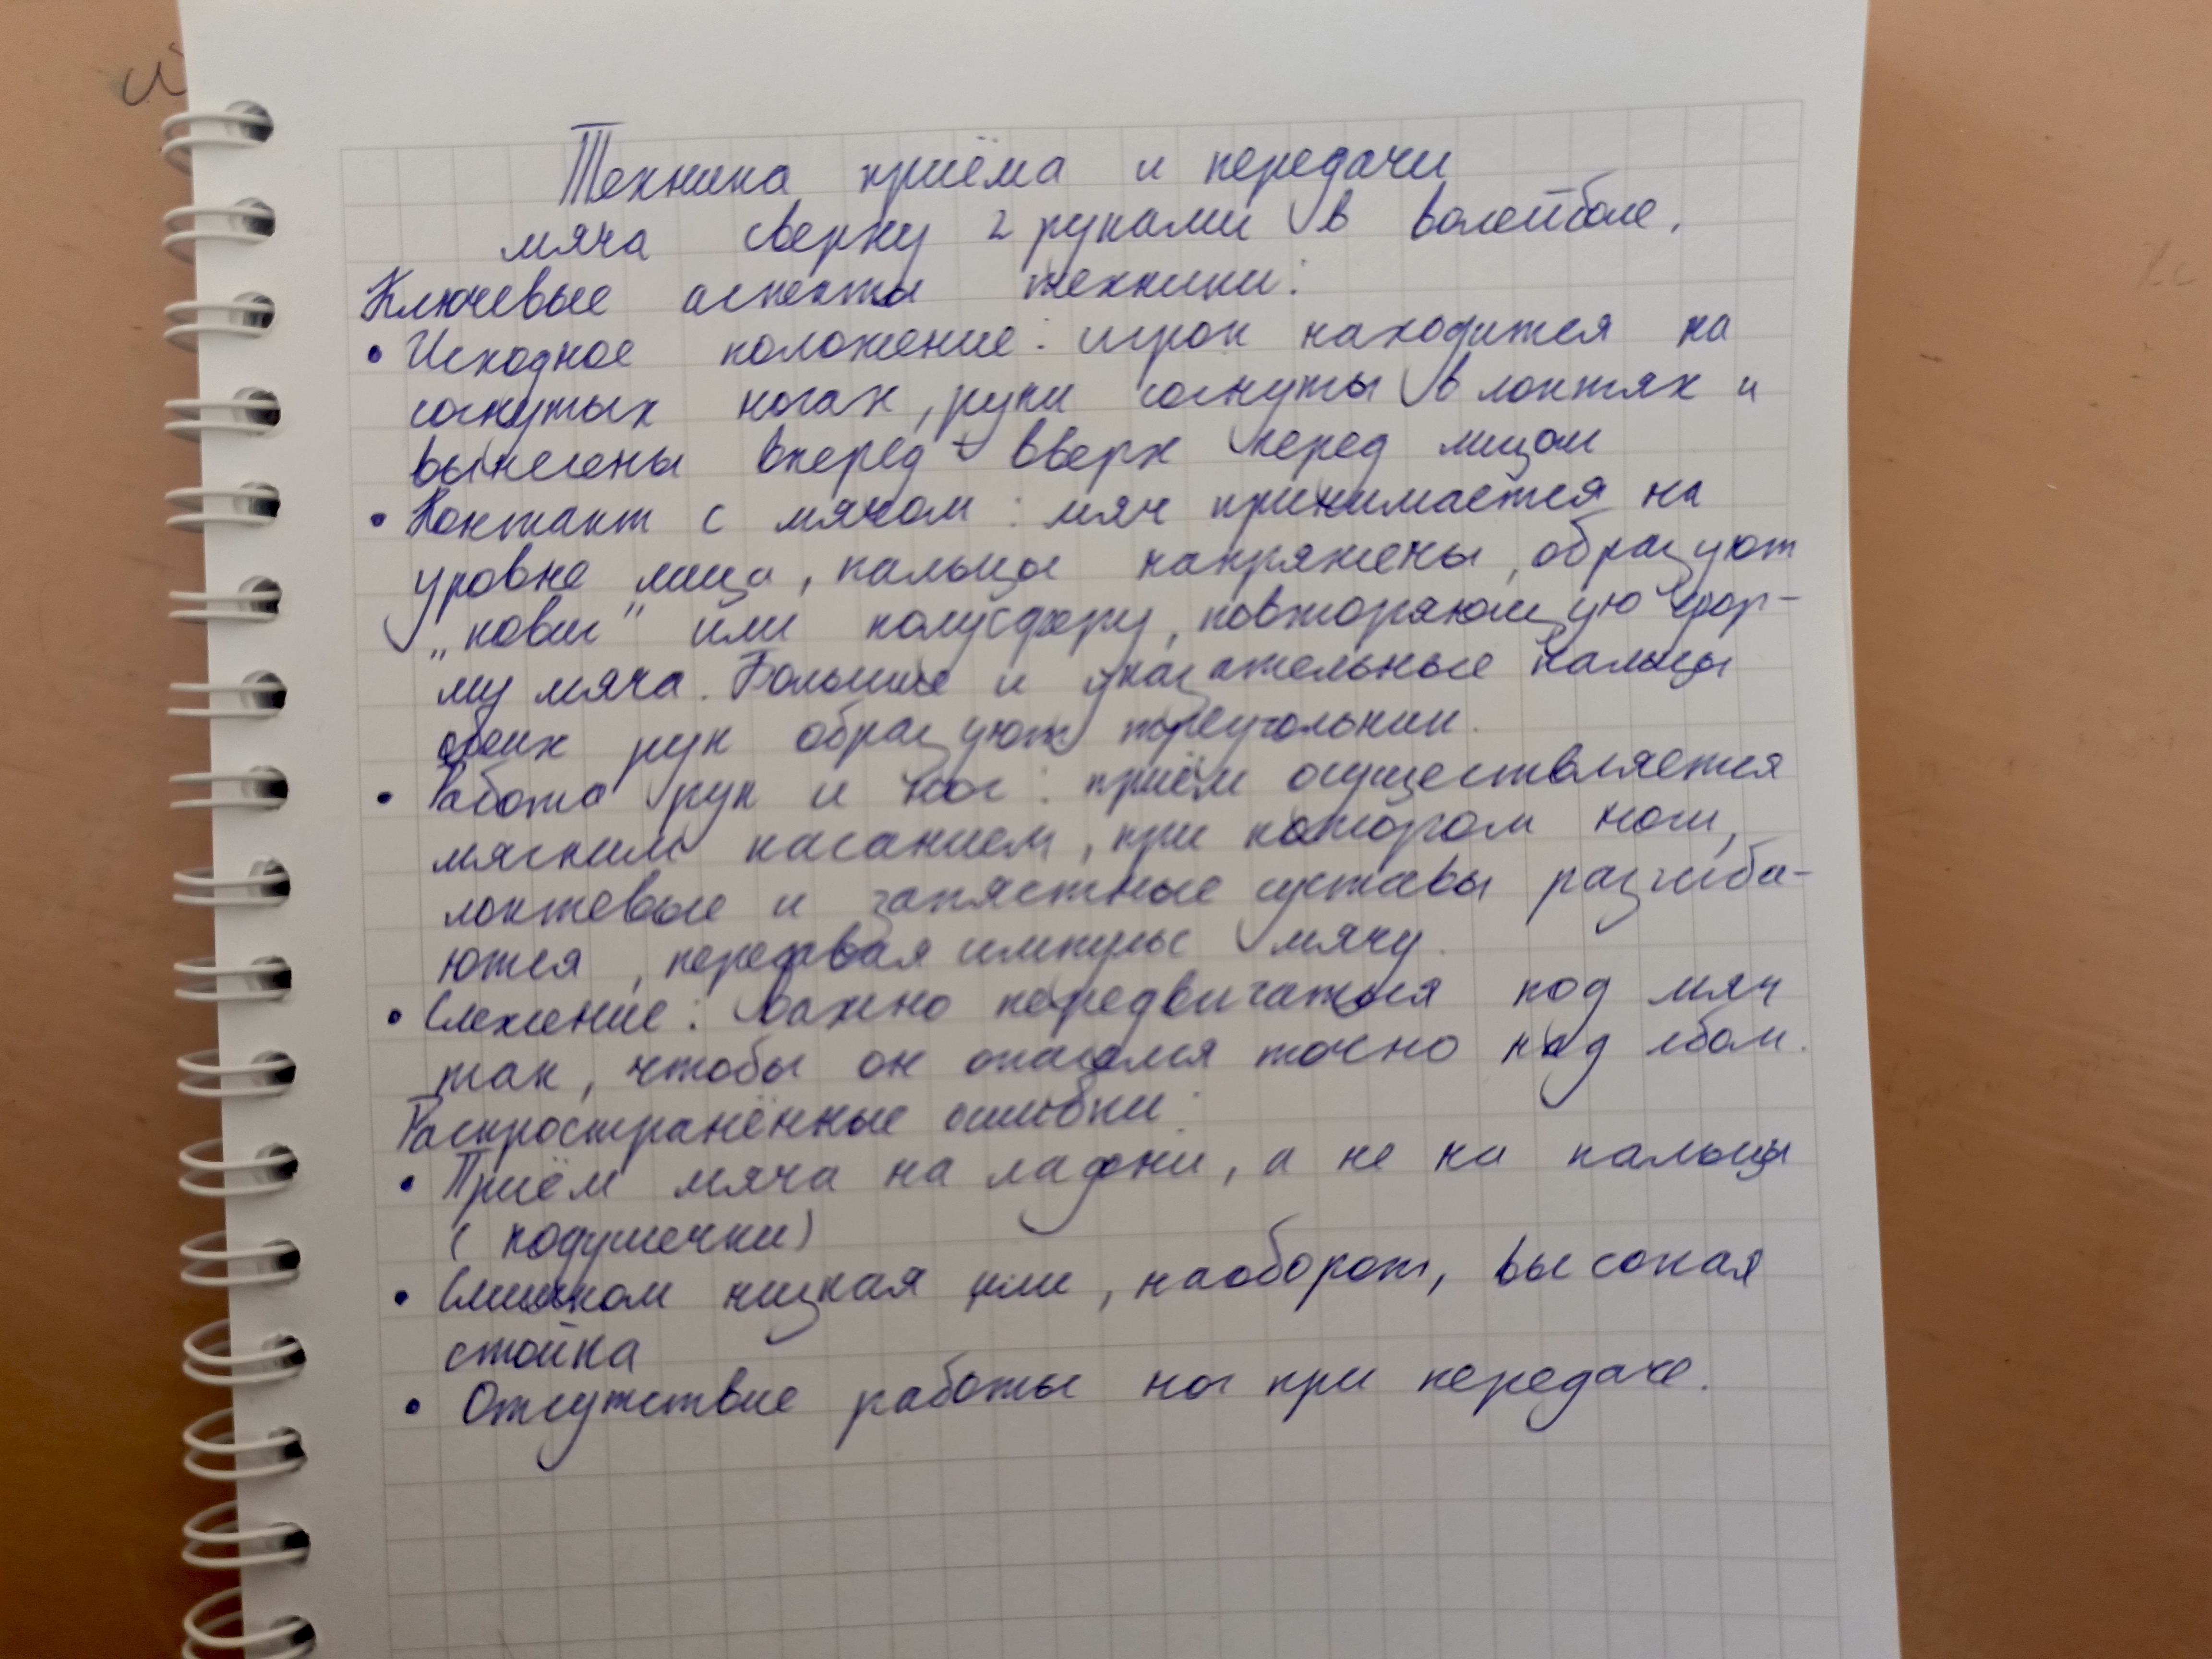 Техника приёма и передачи
мяча сверху 2 руками в волейболе.
Ключевые аспекты техники:
• Исходное положение: игрок находится на
согнутых ногах, руки согнуты в локтях и
вынесены вперед-вверх перед лицом
• Контакт с мячом: мяч принимается на
уровне лица, пальцы напряжены, образуют
„ковш" или полусферу, повторяющую фор-
му мяча. Большие и указательные пальцы
обеих рук образуют треугольник.
• Работа рук и ног: приём осуществляется
мягким касанием, при котором ноги,
локтевые и запястные суставы разгиба-
ются, передавая импульс мячу.
• Слежение: важно передвигаться под мяч
так, чтобы он оказался точно над лбом.
Распространённые ошибки:
• Приём мяча на ладони, а не на пальцы
(подушечки)
• Слишком низкая или, наоборот, высокая
стойка
• Отсутствие работы ног при передаче.